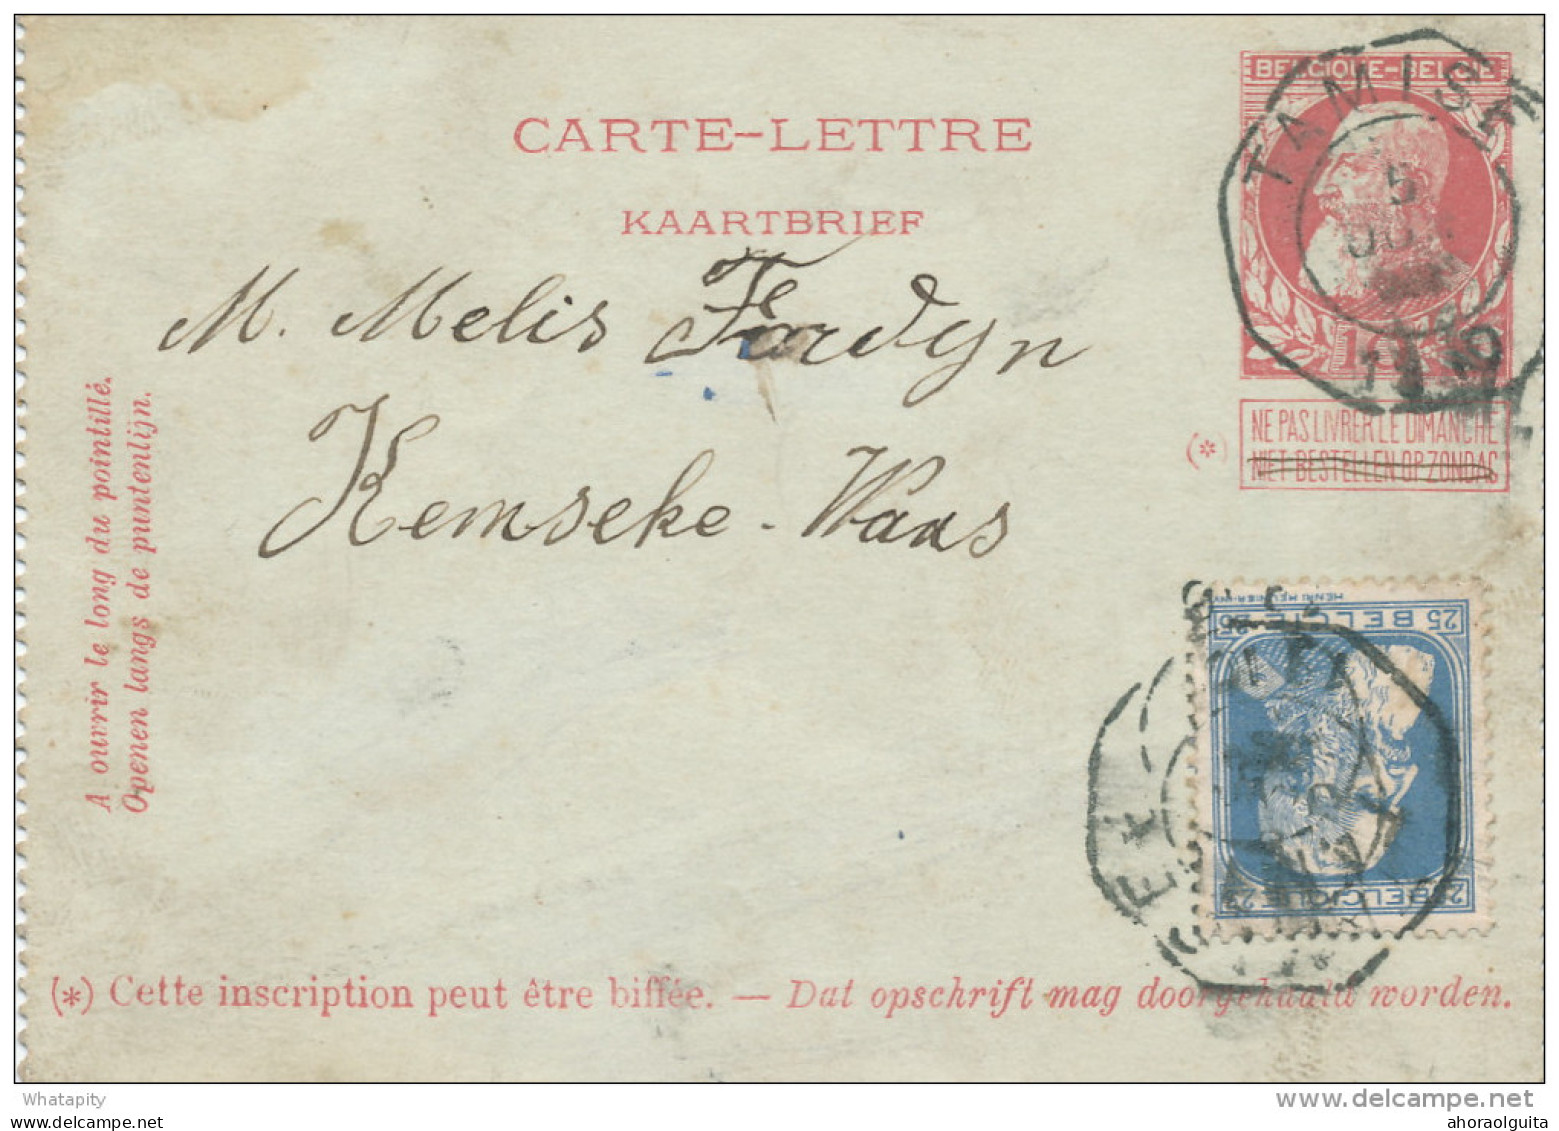 BELGIQUE-BELGIË
TAMISE
5
10
CARTE-LETTRE
KAARTBRIEF
M. Melis Ferdyn
Kemseke-Waas
A ouvrir le long du pointillé.
Openen langs de puntenlijn.
(*)
NE PAS LIVRER LE DIMANCHE
NIET BESTELLEN OP ZONDAG
25 BELGIË 25
25 BELGIQUE 25
(*) Cette inscription peut être biffée. — Dat opschrift mag doorgehaald worden.
Whatapity
www.delcampe.net
ahoraolguita